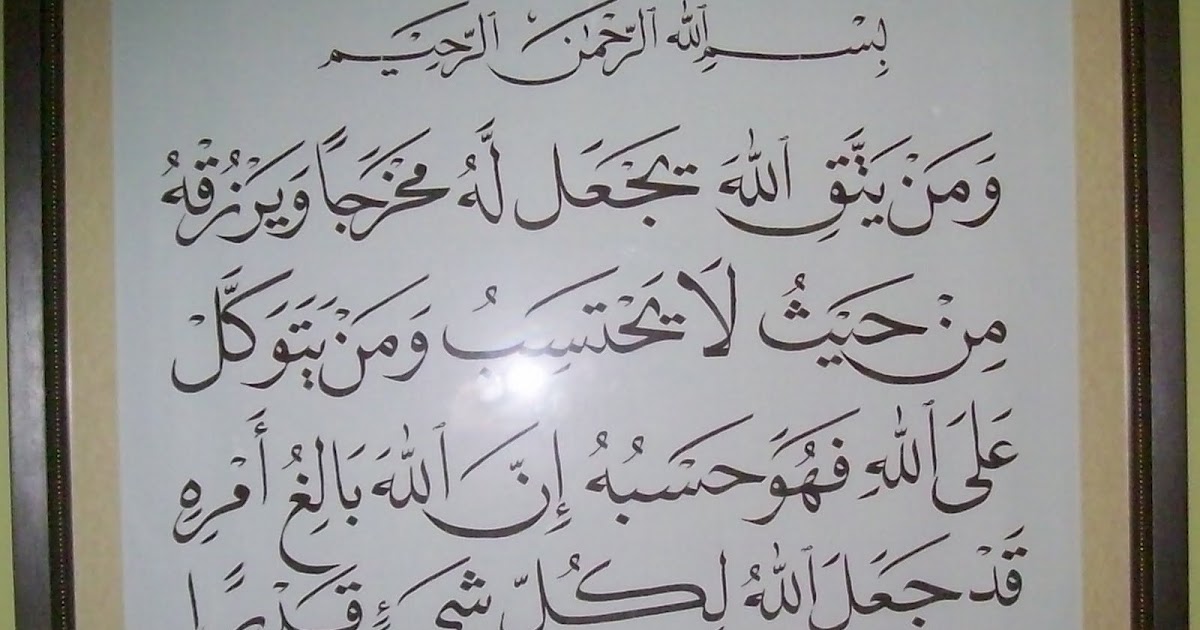 بِسْمِ ٱللّٰهِ ٱلرَّحْمٰنِ ٱلرَّحِيْمِ
وَمَنْ يَتَّقِ ٱللّٰهَ يَجْعَل لَّهُ مَخْرَجًا وَيَرْزُقْهُ
مِنْ حَيْثُ لَا يَحْتَسِبُ وَمَنْ يَتَوَكَّلْ
عَلَى ٱللّٰهِ فَهُوَ حَسْبُهُ إِنَّ ٱللّٰهَ بَالِغُ أَمْرِهِ
قَدْ جَعَلَ ٱللّٰهُ لِكُلِّ شَيْءٍ قَدْرًا